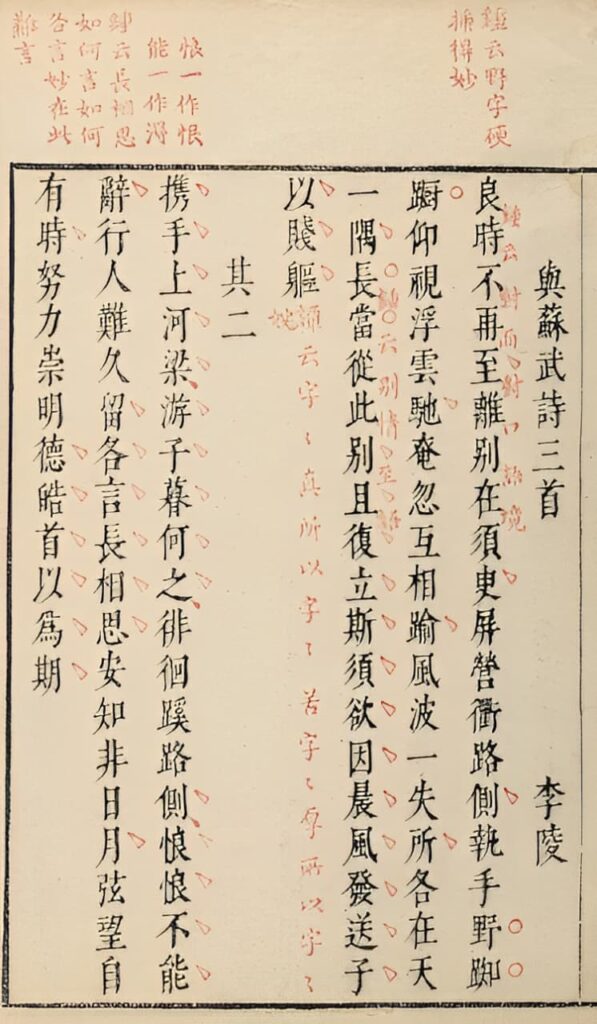 鍾云野字硬
插得妙
悢一作恨
能一作得
云長相思
如何言如何
各言妙在此
難言
與蘇武詩三首 李陵
鍾云對面對口語境
良時不再至離別在須臾屏營衢路側執手野踟
蹰仰視浮雲馳奄忽互相踰風波一失所各在天
鍾云別情至語
一隅長當從此別且復立斯須欲因晨風發送子
以賤軀
云字〻真所以字〻苦字〻厚所以字〻
婉
其二
携手上河梁游子暮何之徘徊蹊路側悢悢不能
辭行人難久留各言長相思安知非日月弦望自
有時努力崇明德皓首以爲期